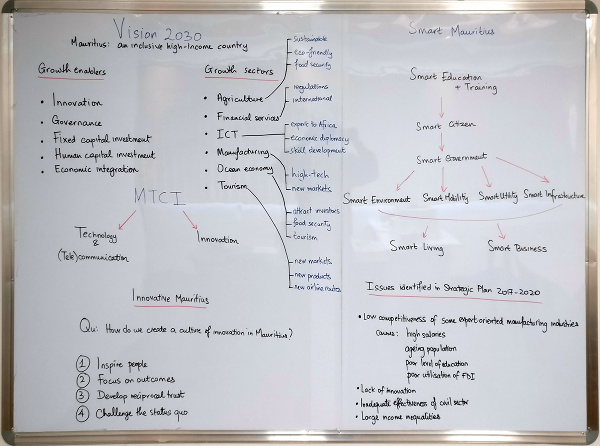 Vision 2030
Mauritius: an inclusive high-income country
Growth enablers
• Innovation
• Governance
• Fixed capital investment
• Human capital investment
• Economic integration
Growth sectors
• Agriculture
• Financial services
• ICT
• Manufacturing
• Ocean economy
• Tourism
sustainable
eco-friendly
food security
regulations
international
export to Africa
economic diplomacy
skill development
high-tech
new markets
attract investors
food security
tourism
new markets
new products
new airline routes
MTCI
Technology
&
(Tele)communication
Innovation
Innovative Mauritius
Qu: How do we create a culture of innovation in Mauritius?
1 Inspire people
2 Focus on outcomes
3 Develop reciprocal trust
4 Challenge the status quo
Smart Mauritius
Smart Education
+ Training
Smart Citizen
Smart Government
Smart Environment Smart Mobility Smart Utility Smart Infrastructure
Smart Living Smart Business
Issues identified in Strategic Plan 2017-2020
• Low competitiveness of some export oriented manufacturing industries
causes: high salaries
ageing population
poor level of education
poor utilisation of FDI
• Lack of innovation
• Inadequate effectiveness of civil sector
• Large income inequalities